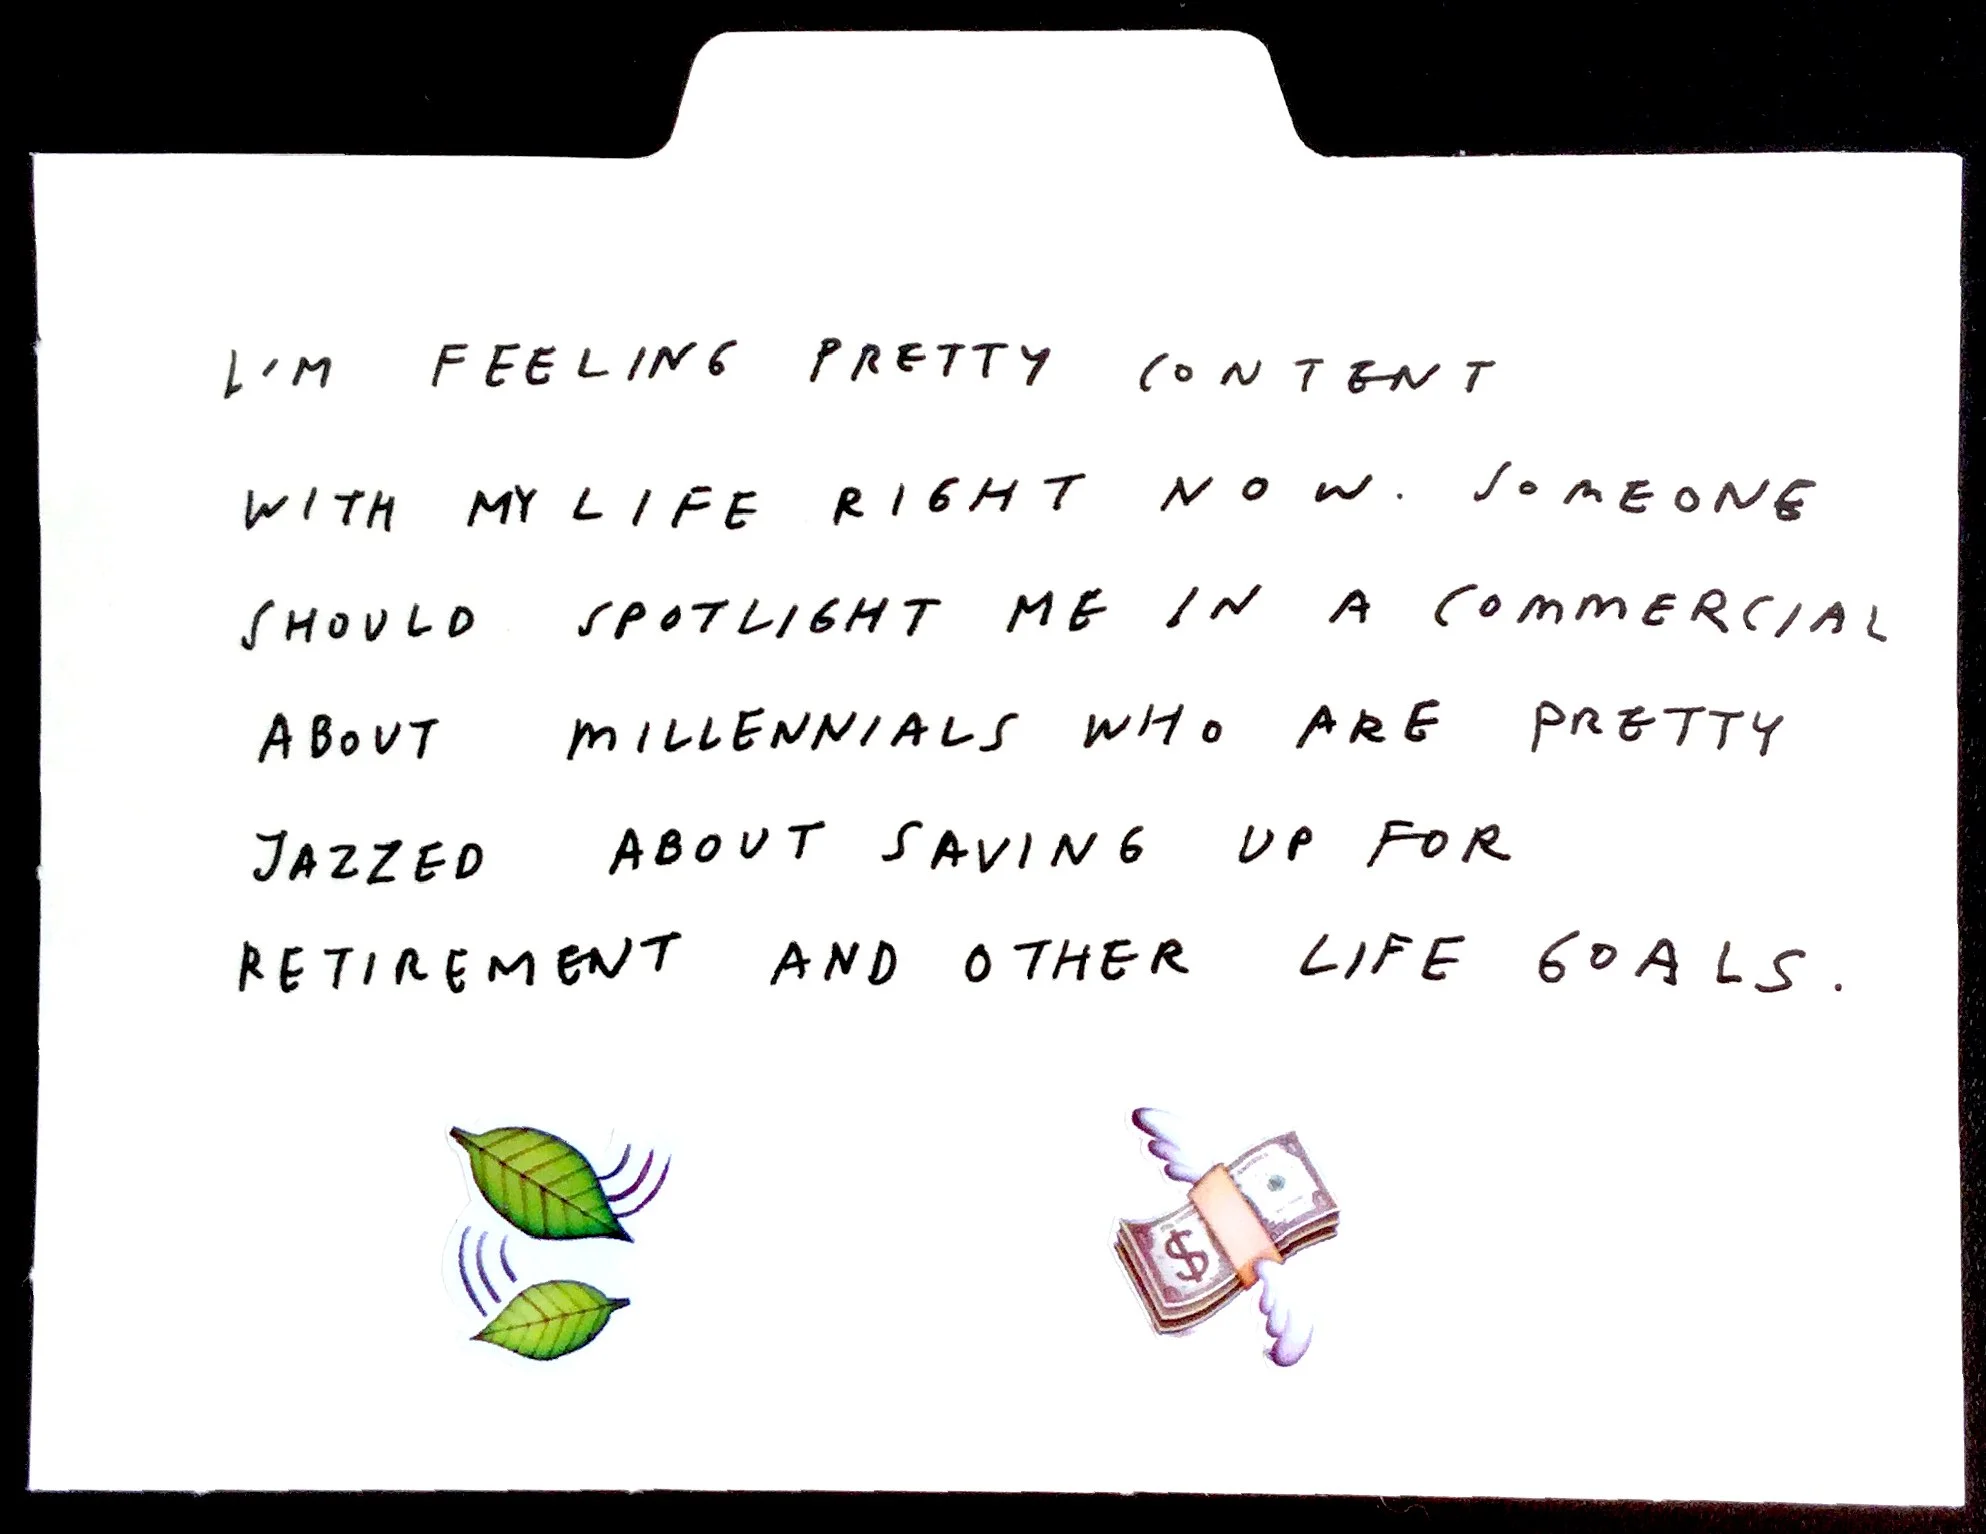 I'M FEELING PRETTY CONTENT
WITH MY LIFE RIGHT NOW. SOMEONE
SHOULD SPOTLIGHT ME IN A COMMERCIAL
ABOUT MILLENNIALS WHO ARE PRETTY
JAZZED ABOUT SAVING UP FOR
RETIREMENT AND OTHER LIFE GOALS.
$